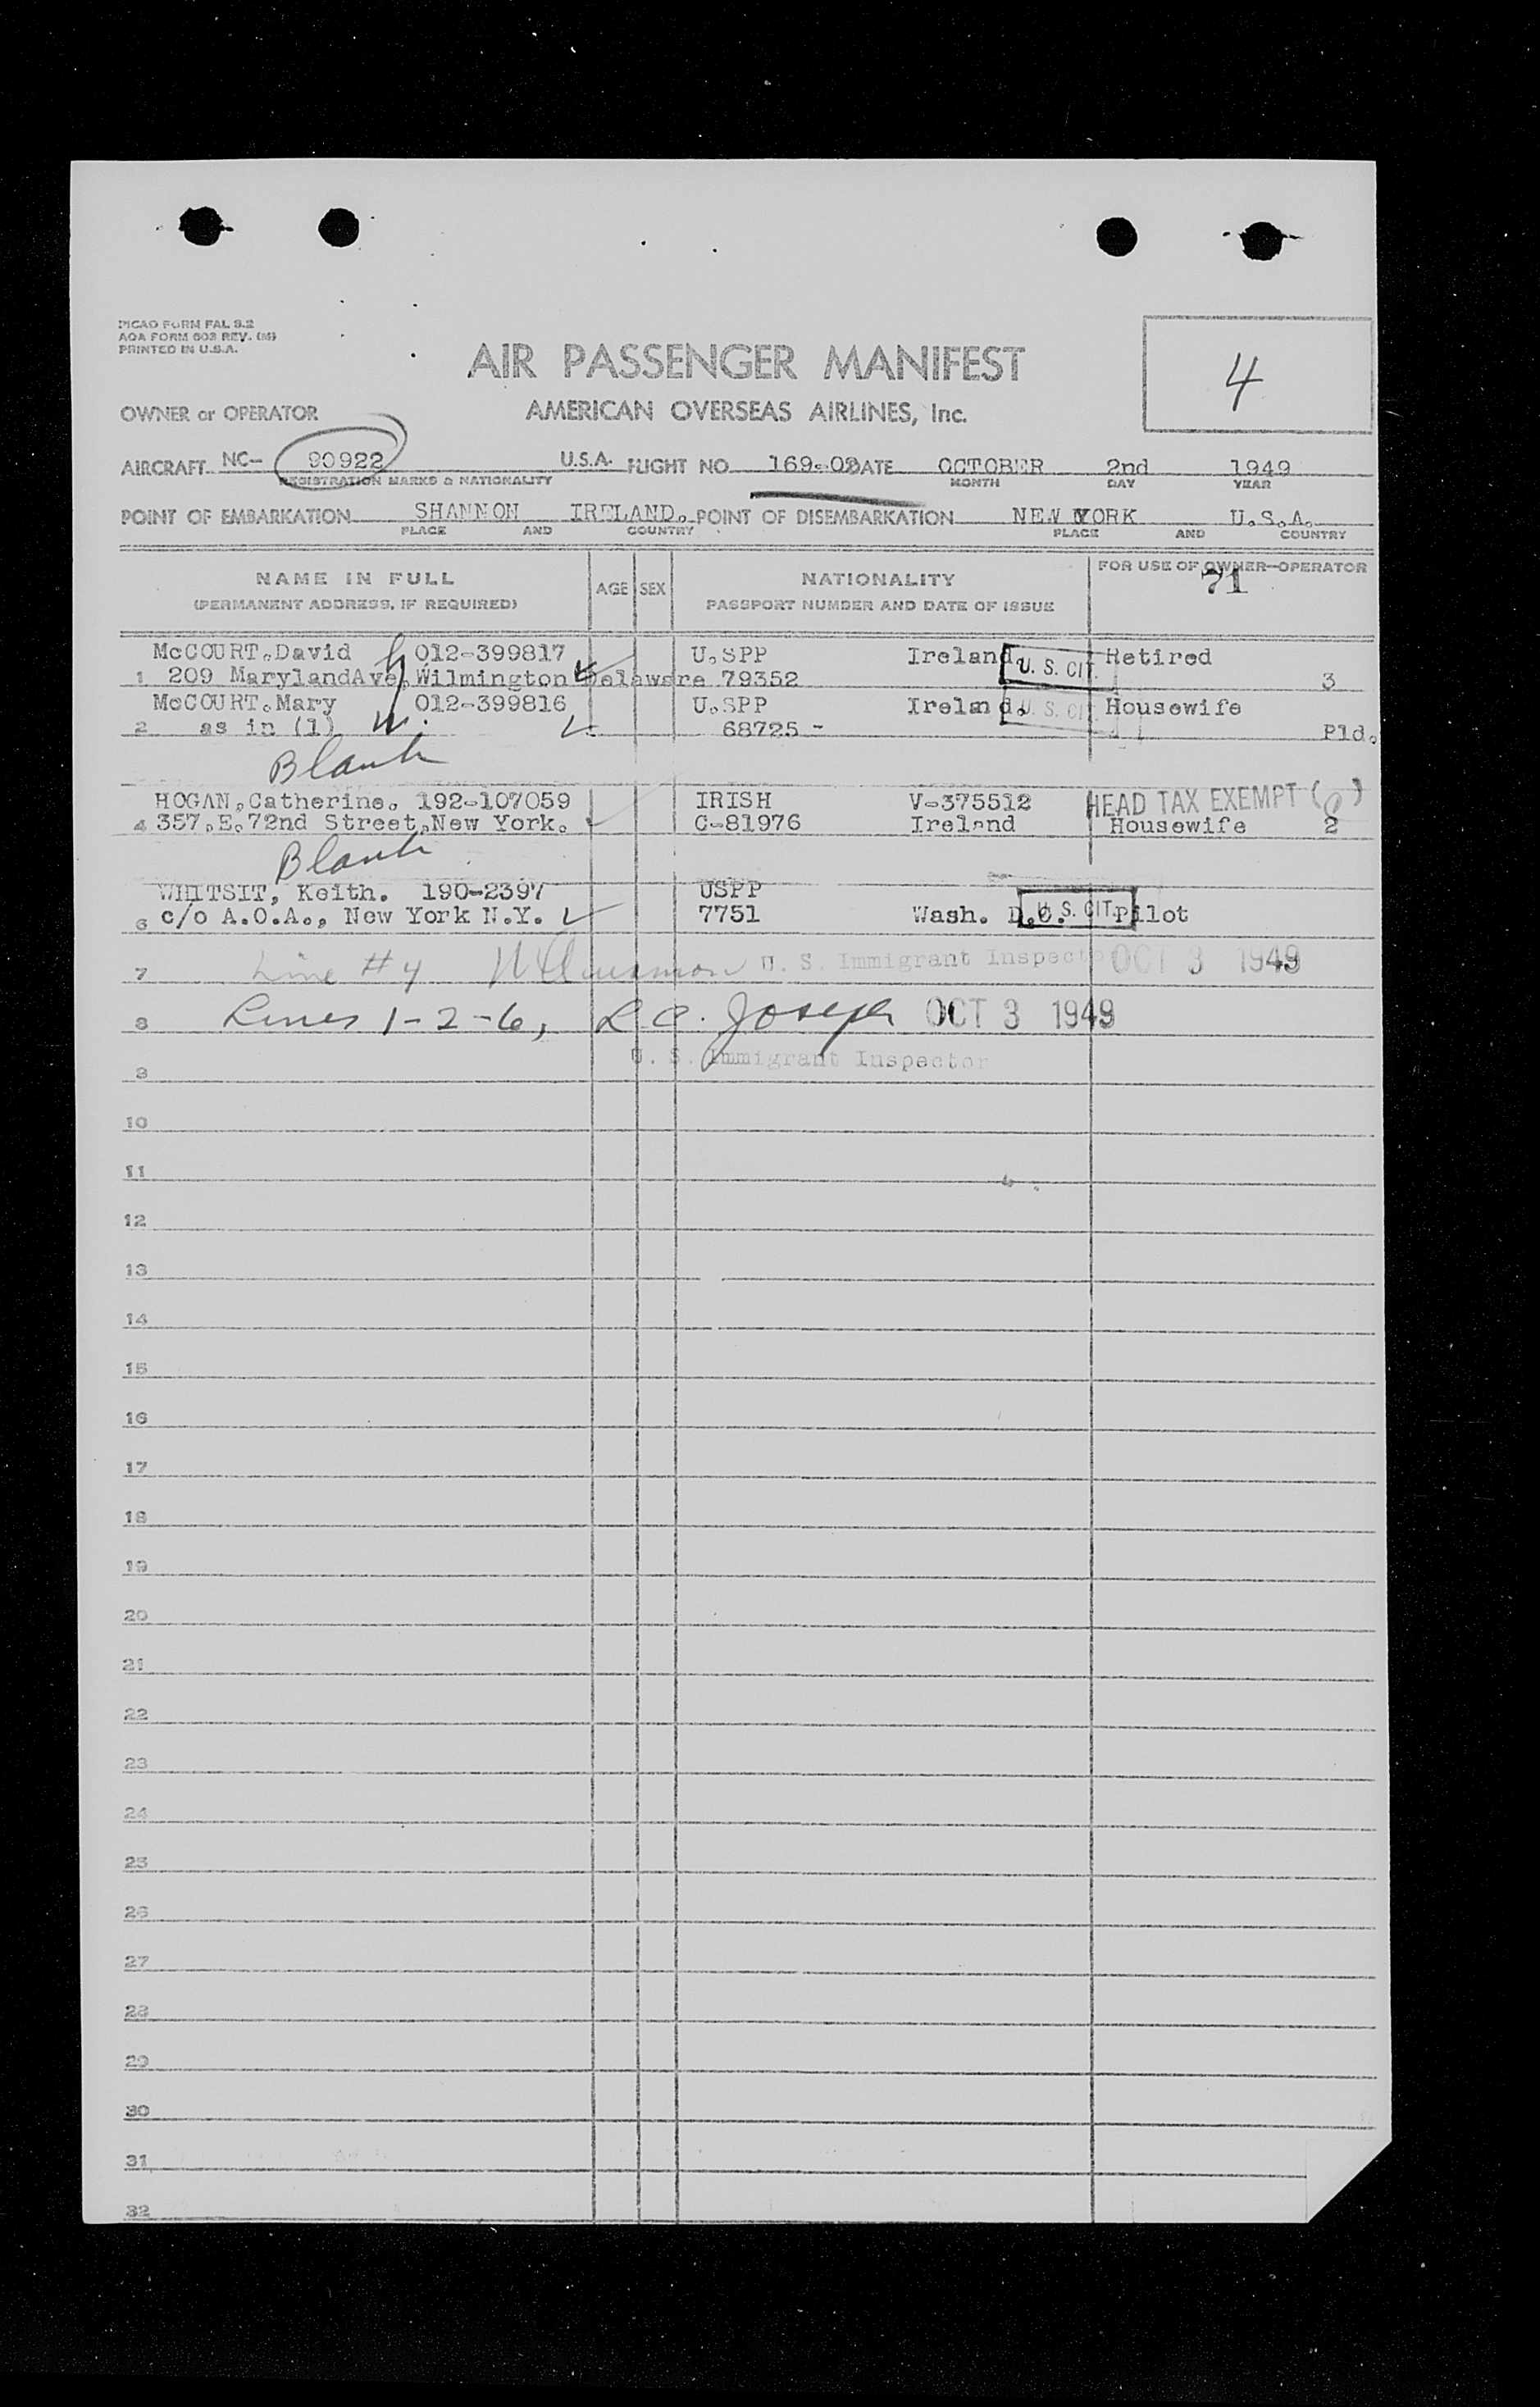 PICAO FORM FAL 8.2
AOA FORM 603 REV.
PRINTED IN U.S.A.
AIR PASSENGER MANIFEST
4
OWNER or OPERATOR AMERICAN OVERSEAS AIRLINES, Inc.
AIRCRAFT NC- 90922 U.S.A. FLIGHT NO 169-02 DATE OCTOBER 2nd 1949
REGISTRATION MARKS & NATIONALITY MONTH DAY YEAR
POINT OF EMBARKATION SHANNON IRELAND. POINT OF DISEMBARKATION NEW YORK U.S.A.
PLACE AND COUNTRY PLACE AND COUNTRY
NAME IN FULL AGE SEX NATIONALITY FOR USE OF OWNER-OPERATOR
(PERMANENT ADDRESS, IF REQUIRED) PASSPORT NUMBER AND DATE OF ISSUE 71
McCOURT.David h 012-399817 U.SPP Ireland U. S. CIT. Retired
1 209 MarylandAve, Wilmington Delaware 79352 3
McCOURT.Mary 012-399816 U.SPP Ireland. U. S. CIT. Housewife
2 as in (1) w. 68725 - Pld.
Blank
HOGAN,Catherine. 192-107059 IRISH V-375512 HEAD TAX EXEMPT ( )
4 357,E.72nd Street,New York. C-81976 Ireland Housewife 2
Blank
WHITSIT, Keith. 190-2397 USPP
6 c/o A.O.A., New York N.Y. 7751 Wash. D.C. U. S. CIT. Pilot
7 Line #4 U. S. Immigrant Inspector OCT 3 1949
8 Lines 1-2-6, R C. Joseph OCT 3 1949
U. S. Immigrant Inspector
9
10
11
12
13
14
15
16
17
18
19
20
21
22
23
24
25
26
27
28
29
30
31
32